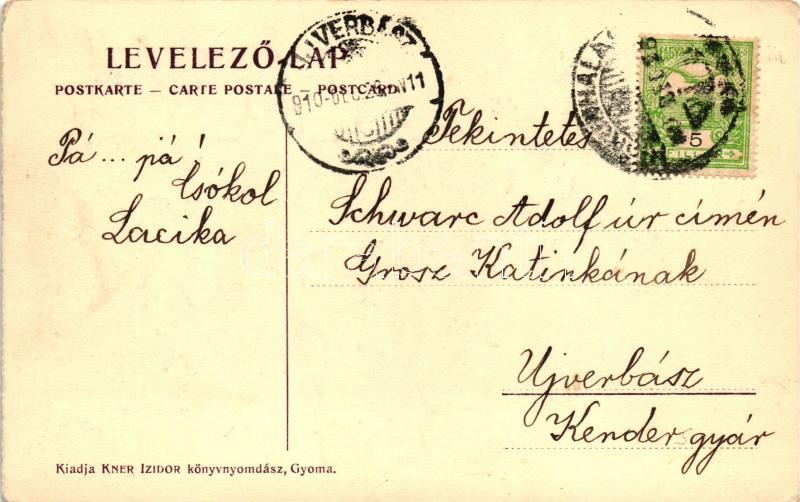 LEVELEZŐ-LAP
POSTKARTE – CARTE POSTALE – POSTCARD
ÚJVERBÁSZ
910 DEC. 28 N11
Pá... pá!
Csókol
Lacika
Tekintetes
Schwarc Adolf úr címén
Grosz Katinkának
Ujverbász
Kendergyár
5
Kiadja KNER IZIDOR könyvnyomdász, Gyoma.